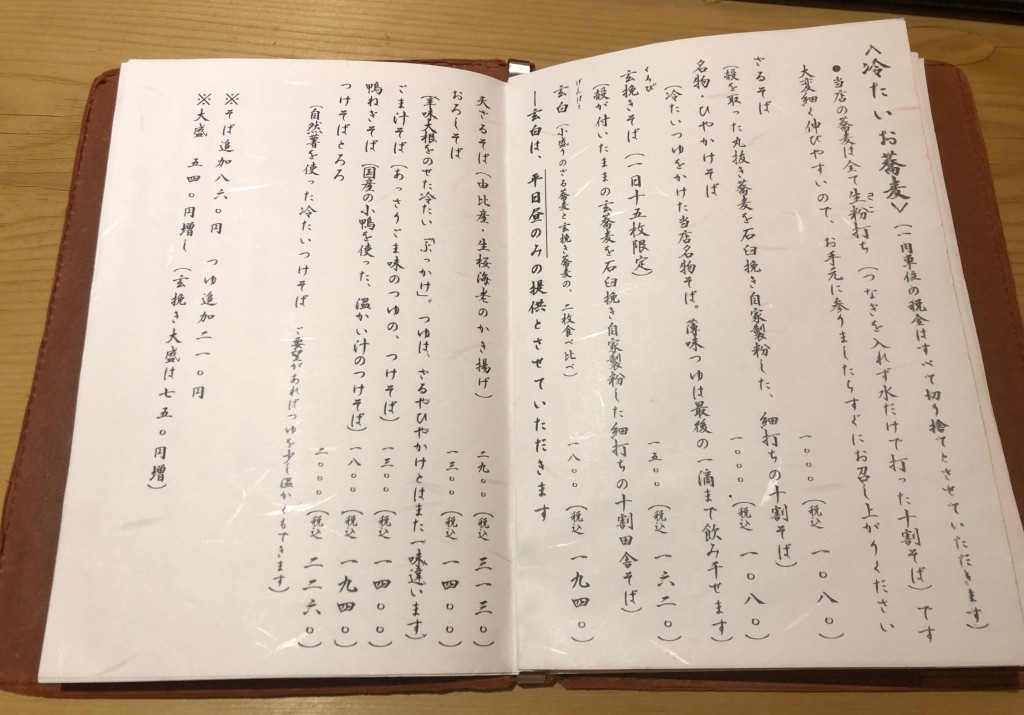 〈冷たいお蕎麦〉（一円単位の税金はすべて切り捨てとさせていただきます）
●当店の蕎麦は全て生粉打ち（つなぎを入れず水だけで打った十割そば）です
きこ
大変細く伸びやすいので、お手元に参りましたらすぐにお召し上がりください
ざるそば　一〇〇〇（税込　一〇八〇）
（殻を取った丸抜き蕎麦を石臼挽き自家製粉した、細打ちの十割そば）
名物・ひやかけそば　一〇〇〇（税込　一〇八〇）
（冷たいつゆをかけた当店名物そば。薄味つゆは最後の一滴まで飲み干せます）
くろび
玄挽きそば（一日十五枚限定）　一五〇〇（税込　一六二〇）
（殻が付いたままの玄蕎麦を石臼挽き自家製粉した細打ちの十割田舎そば）
げんぱく
玄白（小盛りのざる蕎麦と玄挽き蕎麦の、二枚食べ比べ）　一八〇〇（税込　一九四〇）
―玄白は、平日昼のみの提供とさせていただきます
天ざるそば（由比産・生桜海老のかき揚げ）　二九〇〇（税込　三一三〇）
おろしそば　一三〇〇（税込　一四〇〇）
（辛味大根をのせた冷たい「ぶっかけ」。つゆは、ざるやひやかけとはまた一味違います）
ごま汁そば（あっさりごま味のつゆの、つけそば）　一三〇〇（税込　一四〇〇）
鴨ねぎそば（国産の小鴨を使った、温かい汁のつけそば）　一八〇〇（税込　一九四〇）
つけそばとろろ　二〇〇〇（税込　二二六〇）
（自然薯を使った冷たいつけそば　ご要望があればつゆを少し温かくもできます）
※そば追加八六〇円　つゆ追加二一〇円
※大盛　五四〇円増し（玄挽き大盛は七五〇円増）